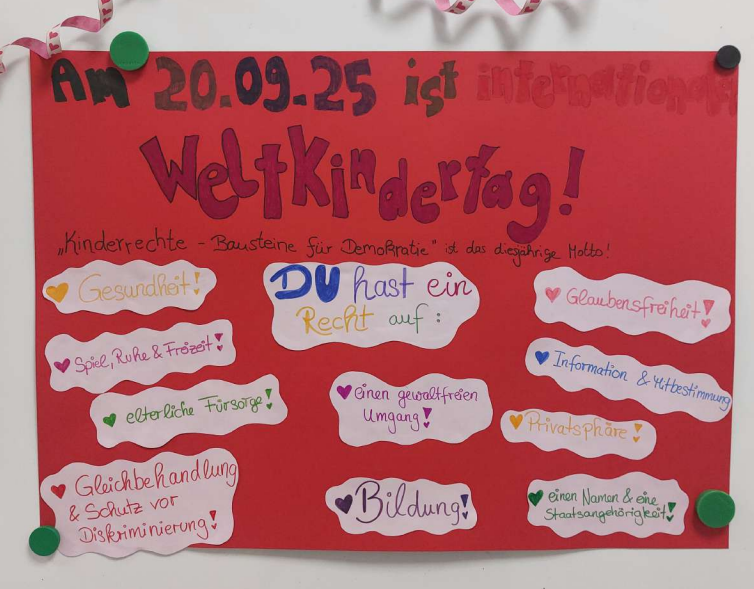 Am 20.09.25 ist international
Weltkindertag!
„Kinderrechte - Bausteine für Demokratie" ist das diesjährige Motto!
DU hast ein
Recht auf:
Gesundheit!
Spiel, Ruhe & Freizeit!
elterliche Fürsorge!
Gleichbehandlung
& Schutz vor
Diskriminierung!
einen gewaltfreien
Umgang!
Bildung!
Glaubensfreiheit!
Information & Mitbestimmung
Privatsphäre!
einen Namen & eine
Staatsangehörigkeit!